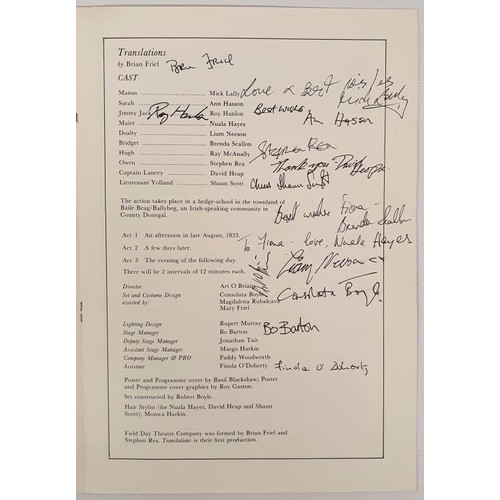 Translations
by Brian Friel Brian Friel
CAST
Manus Mick Lally Love & Best wishes
Mick Lally
Sarah Ann Hasson Best wishes
Ann Hasson
Jimmy Jack Roy Hanlon Roy Hanlon
Maire Nuala Hayes
Doalty Liam Neeson
Bridget Brenda Scallon
Hugh Ray McAnally Stephen Rea
Owen Stephen Rea Thank you David Heap
Captain Lancey David Heap
Lieutenant Yolland Shaun Scott Cheers Shaun Scott
The action takes place in a hedge-school in the townland of
Baile Beag/Ballybeg, an Irish-speaking community in
County Donegal.
Best wishes Fiona -
Brenda Scallon
Act 1 An afternoon in late August, 1833.
To Fiona - love, Nuala Hayes
Act 2 A few days later.
Act 3 The evening of the following day.
Liam Neeson
There will be 2 intervals of 12 minutes each.
Director Art O Briain
Set and Costume Design Consolata Boyle Consolata Boyle
assisted by: Magdalena Rubalcava
Mary Friel
Lighting Design Rupert Murray
Stage Manager Bo Barton Bo Barton
Deputy Stage Manager Jonathan Tait
Assistant Stage Manager Margo Harkin
Company Manager & PRO Paddy Woodworth
Assistant Finola O'Doherty Finola O'Doherty
Poster and Programme cover by Basil Blackshaw; Poster
and Programme cover graphics by Roy Gaston.
Set constructed by Robert Boyle.
Hair Stylist (for Nuala Hayes, David Heap and Shaun
Scott); Monica Harkin.
Field Day Theatre Company was formed by Brian Friel and
Stephen Rea. Translations is their first production.